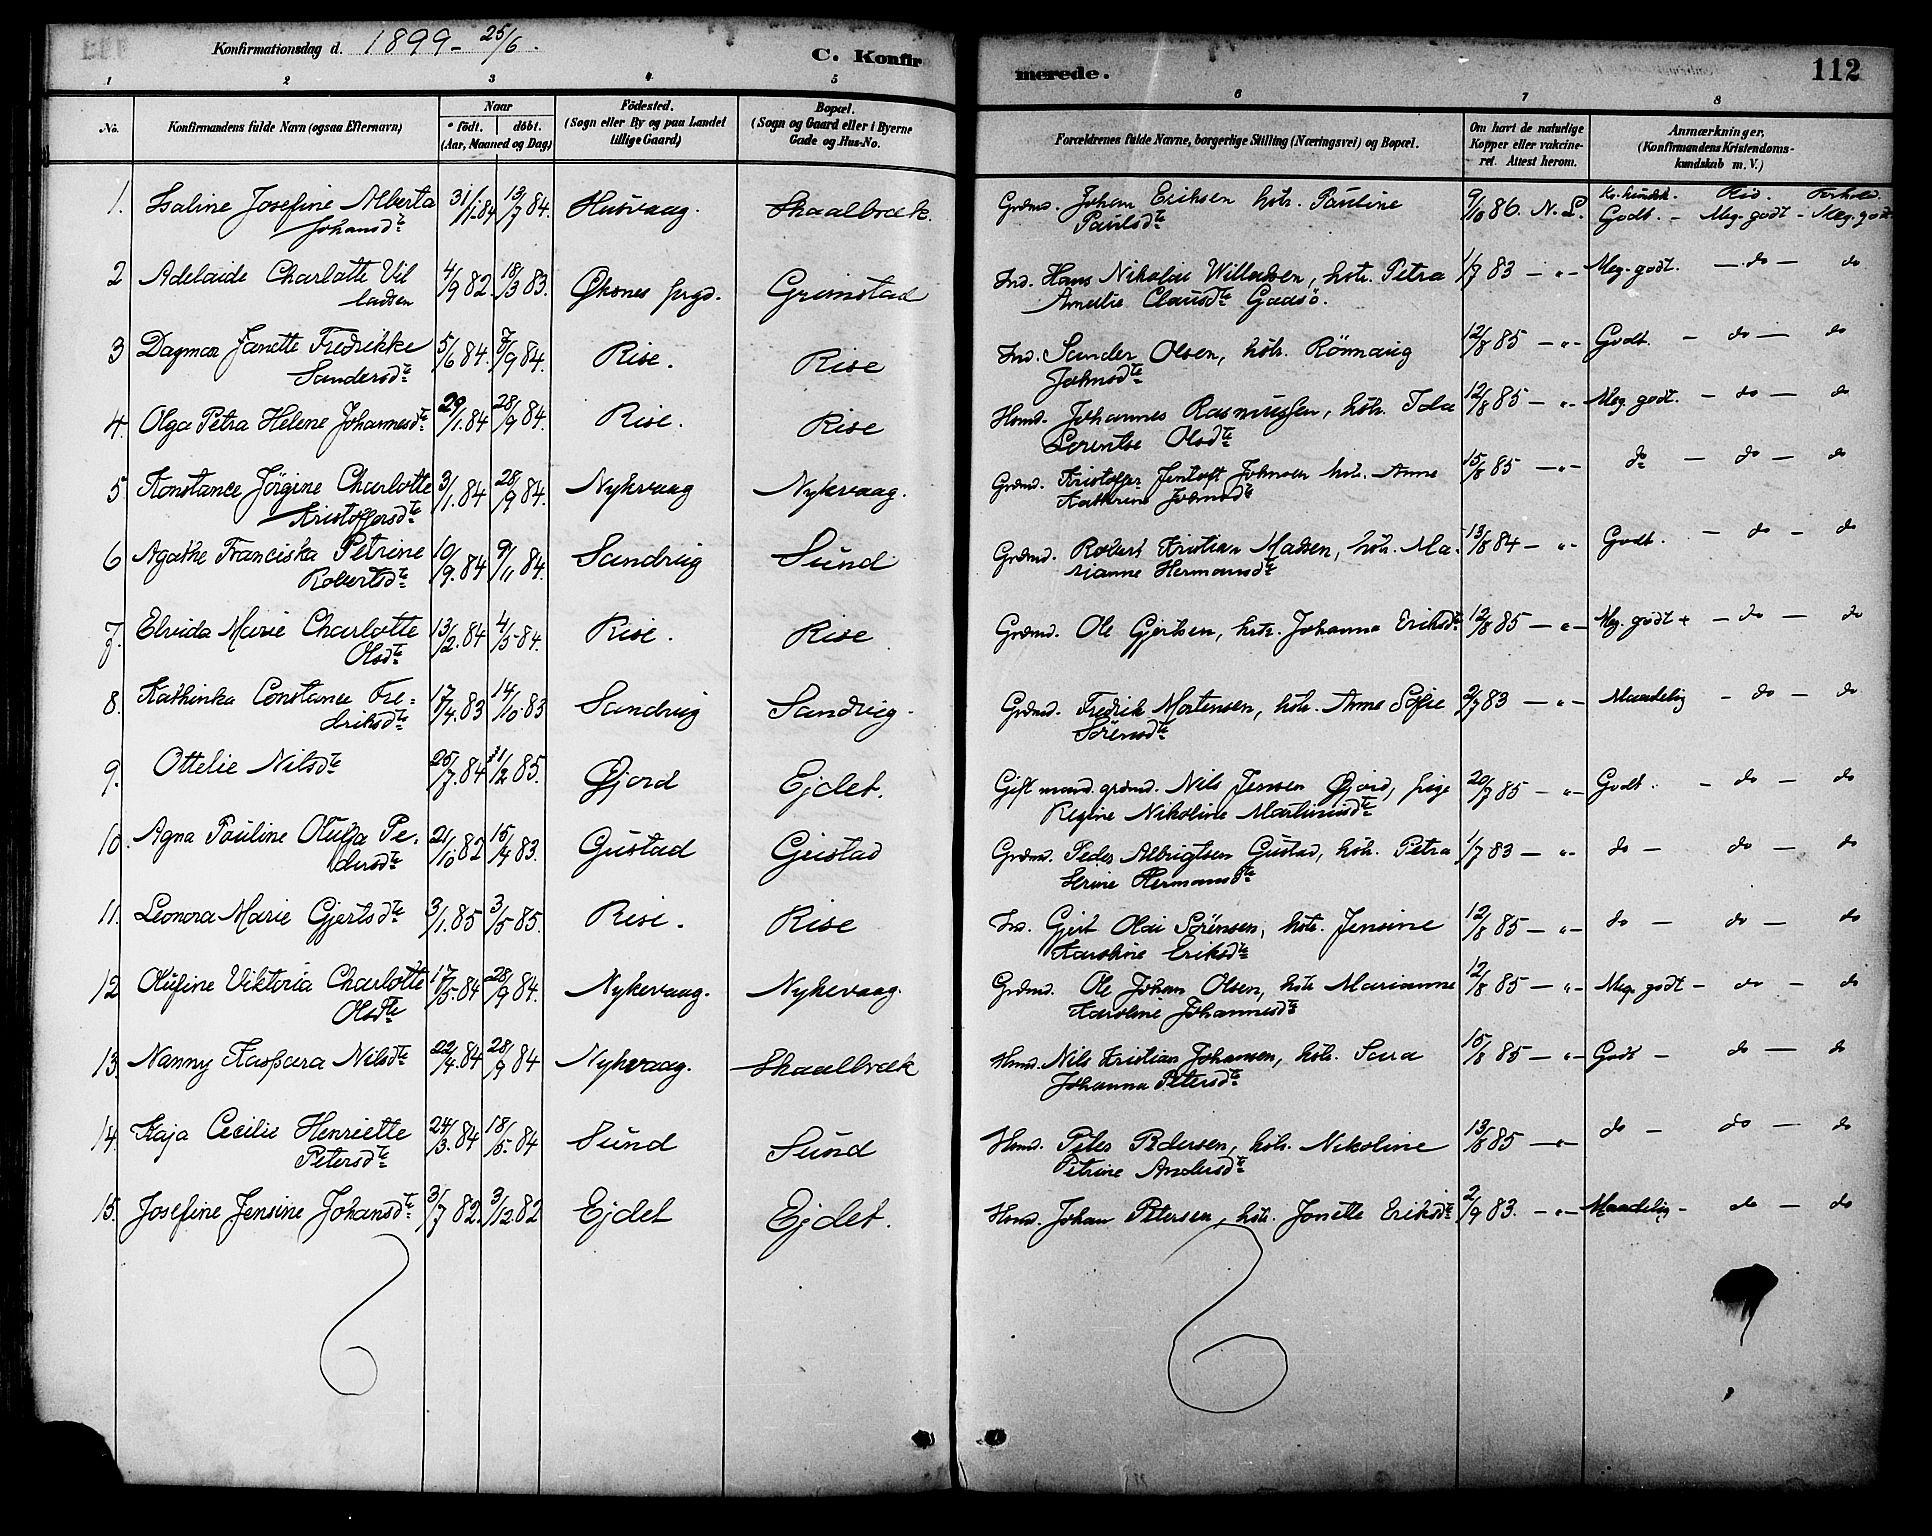 Konfirmationsdag d. 1899 - 25/6.
C. Konfirmerede.
112
1 2 3 4 5 6 7 8
No.
Konfirmandens fulde Navn (ogsaa Efternavn)
Naar
født. døbt.
(Aar, Maaned og Dag)
Födested.
(Sogn eller By og paa Landet
tillige Gaard)
Bopæl.
(Sogn og Gaard eller i Byerne
Gade og Hus-No.
Forældrenes fulde Navne, borgerlige Stilling (Næringsvei) og Bopæl.
Om havt de naturlige
Kopper eller vakcine-
ret. Attest herom.
Anmærkninger,
(Konfirmandens Kristendoms-
kundskab m. V.)
Kr. kundsk. Flid. Forhold.
1. Isaline Josefine Alberta 31/1 84 13/7 84. Husvaag. Skaalbræk. Grdmd. Johan Eriksen hstr. Pauline 9/10 86. N. L. Godt. - Meg. godt - Meg. godt
Johansdtr Paulsdtr
2 Adelaide Charlotte Vil 4/9 82. 18/3 83. Øksnes prgd. Grimstad Ind. Hans Nikolai Willadsen, hstr. Petra 1/7 83 - " - Meg. godt. - do - do
ladsen Amalie Clausdtr Gaasø.
3 Dagmar Janette Fredrikke 5/6 84. 7/9 84. Rise. Rise Ind. Sander Olsen, hstr. Rönnaug 12/8 85 - " - Godt. - do - do
Sandersdtr Johnsdtr
4. Olga Petra Helene Johannesdtr 29/1. 84 28/9 84. Rise. Rise Hsmd. Johannes Rasmussen, hstr. Ida 12/8 85 - " - Meg. godt. - do - do
Lorentse Olsdtr
5 Konstance Jørgine Charlotte 3/1. 84 28/9 84. Nykvaag Nykvaag. Grdmd. Kristoffer Jentoft Johnsen hstr. Anne 15/8 85 - " - do - do - do
Kristoffersdtr Kathrine Johnsdtr
6 Agathe Franciska Petrine 10/9. 84 9/11 84. Sandvig Sund Grdmd. Robert Kristian Madsen, hstr. Ma- 13/8 84 - " - Godt. - do - do
Robertsdtr rianne Hermansdtr
7. Elvida Marie Charlotte 13/2. 84 4/5 84. Rise. Rise Grdmd. Ole Gjertsen, hstr. Johanna Eriksdtr 12/8 85 - " - Meg. godt + - do - do
Olsdtr
8. Kathinka Constance Fre- 17/4. 83 14/10 83 Sandvig Sandvig. Grdmd. Fredrik Mortensen, hstr. Anne Sofie 2/7 83 - " - Maadelig - do - do
driksdtr Sörensdtr
9. Ottelie Nilsdtr 25/7. 84 11/2 85. Øjord Ejdet. Gift mand grdmd. Nils Jensen Øjord, pige 20/7 85 - " - Godt. - do - do
Regine Nikoline Martinusdtr
10. Agna Pauline Olufa Pe- 21/10 82 15/4 83. Gustad Gustad Grdmd. Peder Albrigtsen Gustad, hstr. Petra 1/7 83 - " - do - do - do
dersdtr Serine Hermansdtr
11. Leonora Marie Gjertsdtr 3/1. 85 3/5 85. Rise. Rise Ind. Gjert Olai Sörensen, hstr. Jensine 12/8 85 - " - do - do - do
Karoline Eriksdtr
12 Olufine Viktoria Charlotte 17/5. 84 28/9 84. Nykevaag. Nykevaag. Grdmd. Ole Johan Olsen, hstr Marianne 12/8 85 - " - Meg. godt - do - do
Olsdtr Karoline Johannesdtr
13. Nanny Kaspara Nilsdtr 22/4. 84 28/9 84 Nykvaag. Skaalbræk Hsmd. Nils Kristian Johansen, hstr. Sara 15/8 85 - " - Godt - do - do
Johanna Petersdtr
14. Kaja Cecilie Henriette 24/3. 84 18/5. 84 Sund Sund Hsmd. Peter Pedersen, hstr. Nikoline 13/8 85 - " do - do - do
Petersdtr Petrine Andersdtr
15. Josefine Jensine Johansdtr 3/7 82. 3/12 82 Ejdet Ejdet. Hsmd. Johan Petersen, hstr. Jonette Eriksdtr 2/9 83. - " - Maadelig - do - do